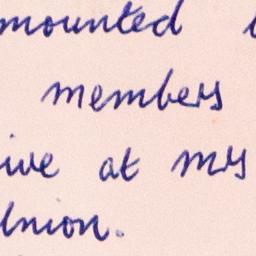 mounted
members
ive at mrs
Union.